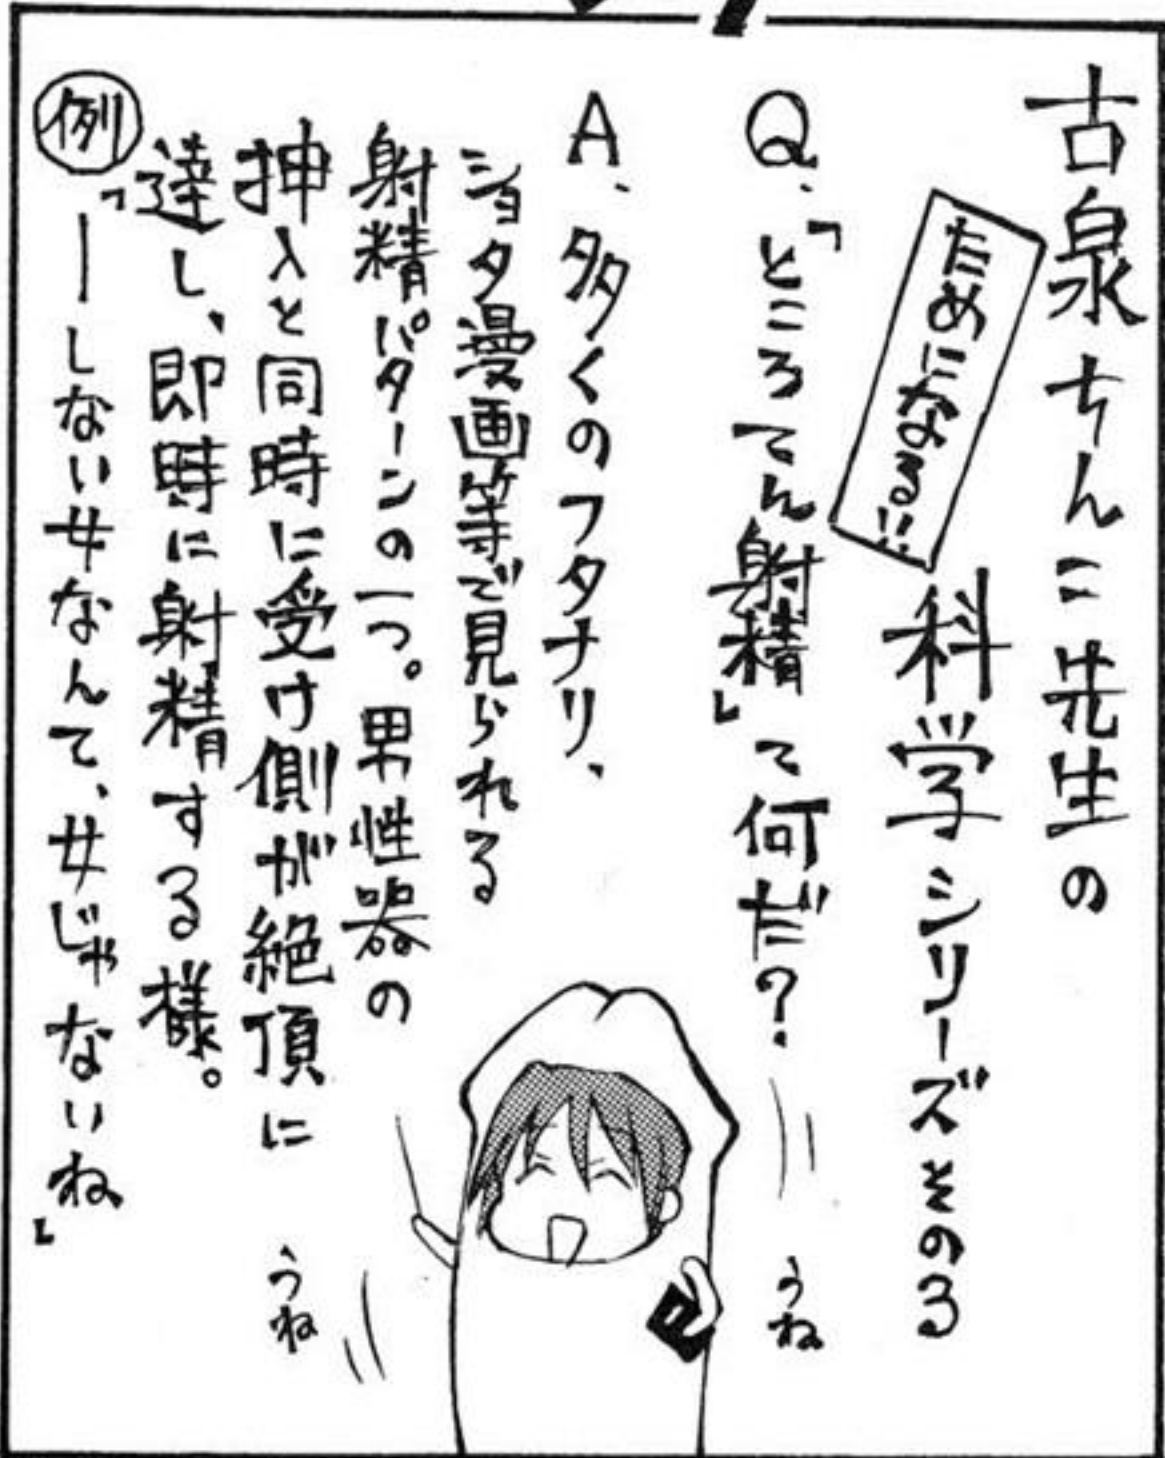 古泉ちんこ先生の
ためになる!!
科学シリーズその3
Q、「ところてん射精」て何だ?
A、多くのフタナリ、
ショタ漫画等で見られる
射精パターンの一つ。男性器の
挿入と同時に受け側が絶頂に
達し、即時に射精する様。
例
「ーしない女なんて、女じゃないね」
うね
うね